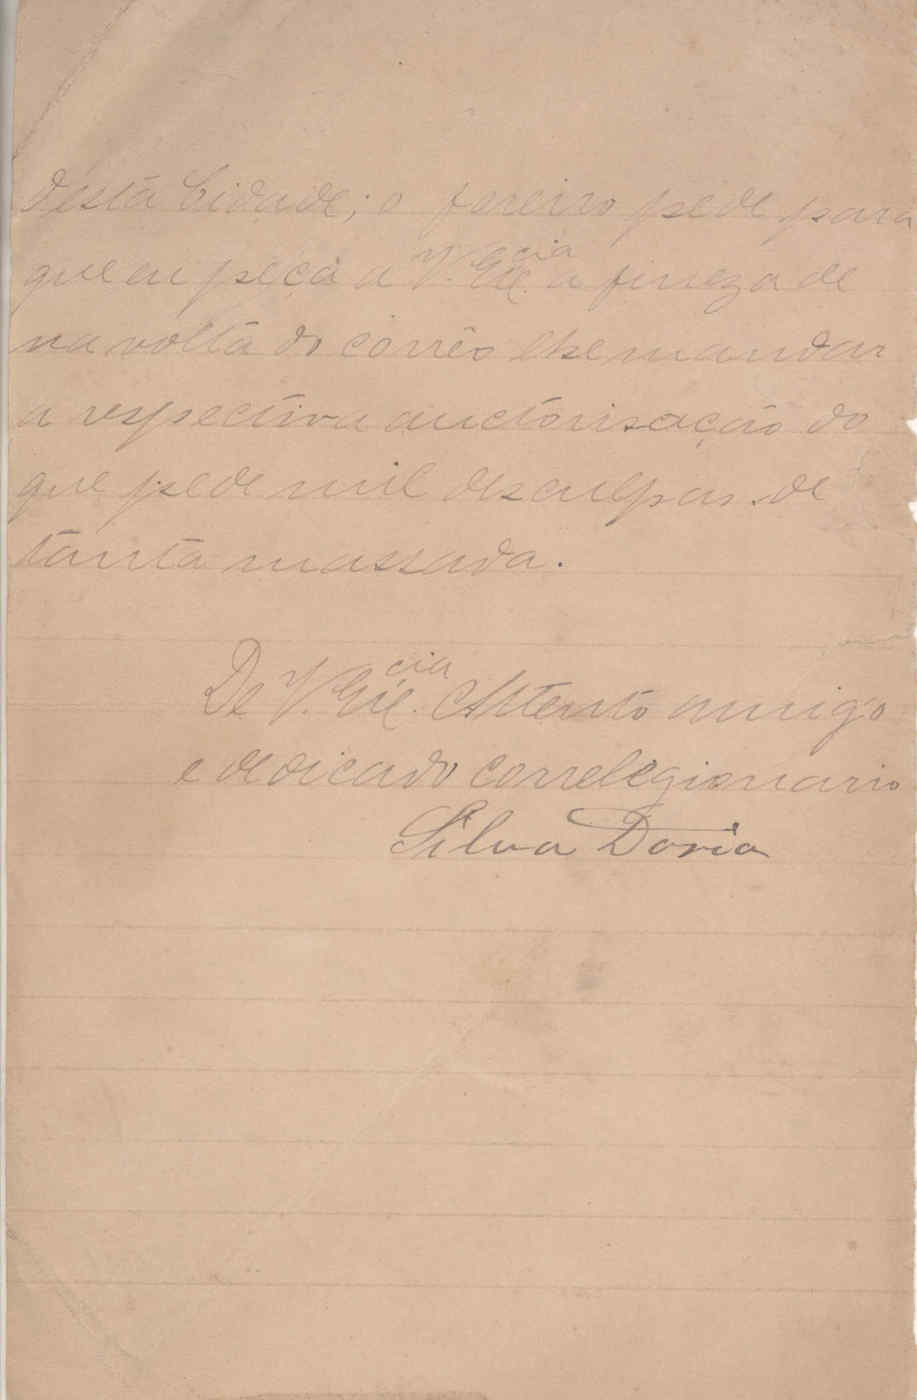 desta Cidade; o fereiro pede para
que eu peça a V. Exc.cia a fineza de
na volta do corrêo lhe mandar
a respectiva auctorisação do
que pede mil desculpas de
tanta massada.
De V. Exc.cia Attento amigo
e dedicado correlegionario
Silva Doria